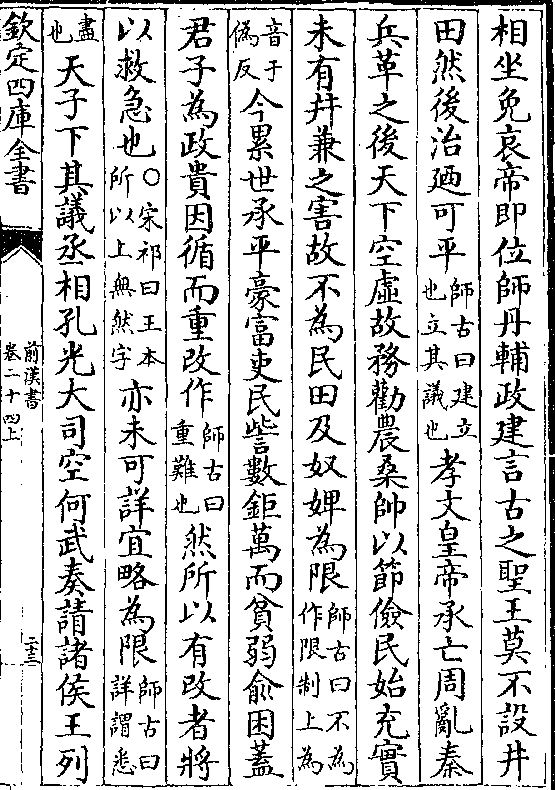 相坐免哀帝即位師丹輔政建言古之聖王莫不設井
田然後治廼可平師古曰建立也立其議也孝文皇帝承亡周亂秦
兵革之後天下空虛故務勸農桑帥以節儉民始充實
未有并兼之害故不為民田及奴婢為限師古曰不為作限制上為
音于偽反今累世承平豪富吏民訾數鉅萬而貧弱兪困蓋
君子為政貴因循而重改作師古曰重難也然所以有改者將
以救急也○宋祁曰王本所以上無然字亦未可詳宜略為限師古曰詳謂悉
盡也天子下其議丞相孔光大司空何武奏請諸侯王列
欽定四庫全書
前漢書
卷二十四上
二十三